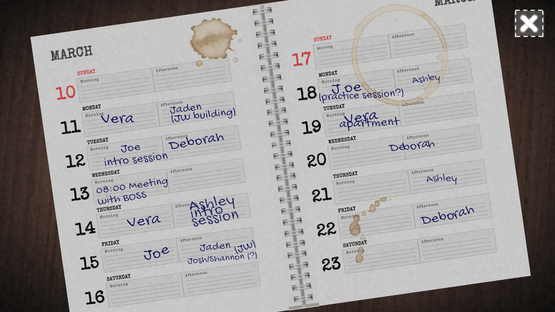 MARCH
SUNDAY
10 Morning Afternoon
MONDAY
11 Morning Afternoon
Vera Jaden
(JW building)
TUESDAY
12 Morning Afternoon
Joe Deborah
intro session
WEDNESDAY
13 Morning Afternoon
08:00 Meeting
with BOSS
THURSDAY
14 Morning
Vera Ashley
intro
session
FRIDAY
15 Morning Afternoon
Joe Jaden (JW)
Josh/Shannon (?)
SATURDAY
16 Morning Afternoon
MARCH
SUNDAY
17 Morning Afternoon
MONDAY
18 Morning Afternoon
Joe Ashley
(practice session?)
TUESDAY
19 Morning Afternoon
Vera
apartment
WEDNESDAY
20 Morning Afternoon
Deborah
THURSDAY
21 Morning Afternoon
Ashley
FRIDAY
22 Morning Afternoon
Deborah
SATURDAY
23 Morning Afternoon